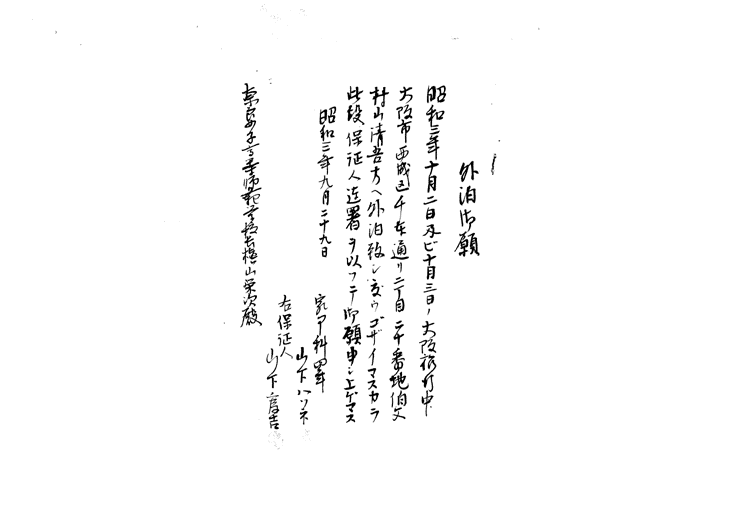 外泊御願
昭和三年十月二日及ビ十月三日ノ大阪旅行中
大阪市西成区千本通リ二丁目二十番地伯父
村山清吾方ヘ外泊致シ度ウゴザイマスカラ
此段保证人連署ヲ以ツテ御願申シ上ゲマス
昭和三年九月二十九日
家事科四年
山下ハツネ
右保证人
山下彦吉
奈良女子高等師範学校長横山栄次殿